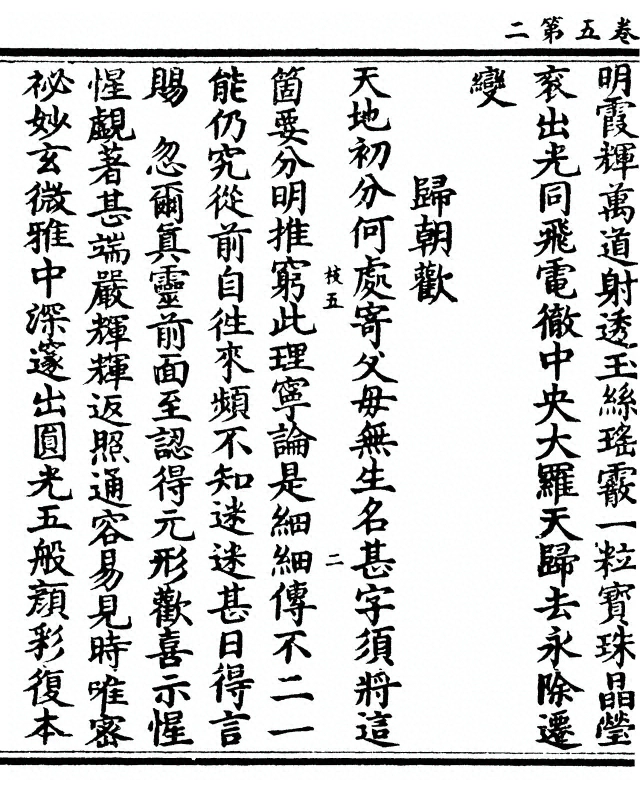 卷五第二
明霞輝萬道射透玉絲瑤霰一粒寶珠晶瑩
袞出光同飛電徹中央大羅天歸去永除遷
變
歸朝歡
天地初分何處寄父毋無生名甚字須將這
枝五 二
箇要分明推窮此理寧論是細細傳不二一
能仍究從前自徃來頻不知迷迷甚日得言
賜 忽爾真靈前面至認得元形歡喜示惺
惺覷著甚端嚴輝輝返照通容易見時唯密
祕妙玄微雅中深邃出圓光五般顏彩復本